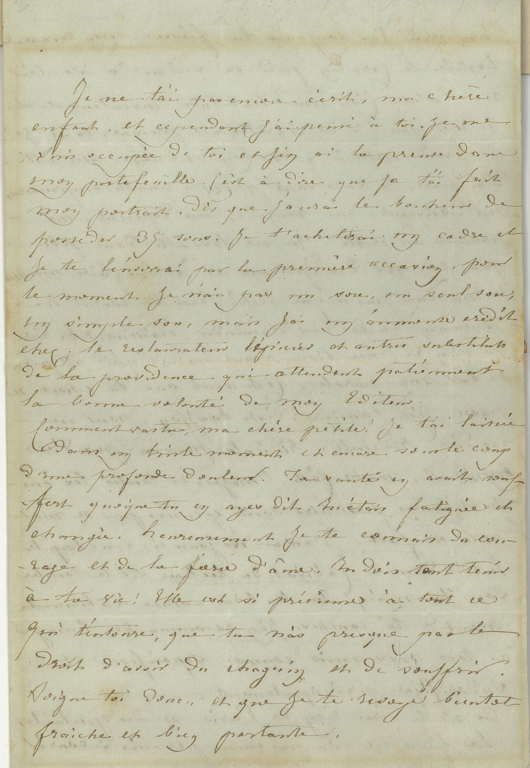 Je ne t'ai pas encore écrit, ma chère
enfant, et cependant j'ai pensé à toi. Je me
suis occupée de toi et j'en ai la preuve dans
mon portefeuille c'est à dire que je t'ai fait
mon portrait. Dès que j'aurai le bonheur de
posséder 35 sous. Je t'achèterai un cadre et
je te l'enverrai par la première occasion. pour
le moment je n'ai pas un sou, un seul sou,
un simple sou, mais j'ai un immense crédit
chez le restaurateur et autres substituts
de la providence qui attendent patiemment
la bonne volonté de mon Editeur.
Comment vas tu, ma chère petite? je t'ai laissée
dans un triste moment et encore sous le coup
d'une profonde douleur. Ta santé en avait souf-
fert quoique tu en ayes dit. Tu étais fatiguée et
changée. heureusement je te connais du cou-
-rage et de la force d'âme. Tu dois tant tenir
à ta vie! Elle est si précieuse à tout ce
qui t'entoure, que tu n'as presque pas le
droit d'avoir du chagrin et de souffrir.
Soigne toi donc, et que je te revoye bientôt
fraîche et bien portante.